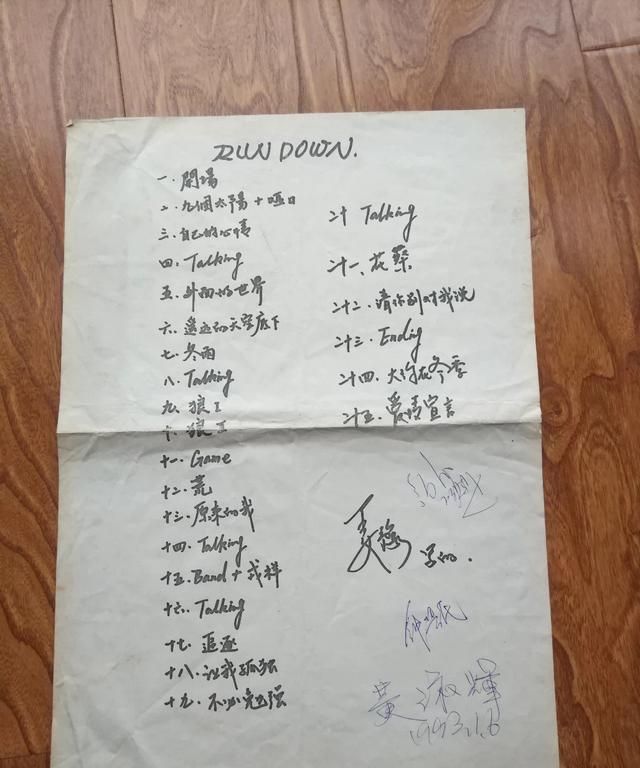 RUN DOWN.
一.開場
二.九個太陽+啞口
三.自己的心情
四.Talking
五.外面的世界
六.遙遠的天空底下
七.冬雨
八.Talking
九.狼I
十.狼II
十一.Game
十二.荒
十三.原來的我
十四.Talking
十五.Band+我料
十六.Talking
十七.追逐
十八.让我孤独
十九.不必勉强
二十 Talking
二十一、花祭
二十二.请你别对我说
二十三.Ending
二十四.大约在冬季
二十五.爱情宣言
写的.
黃淑輝
1993.1.6